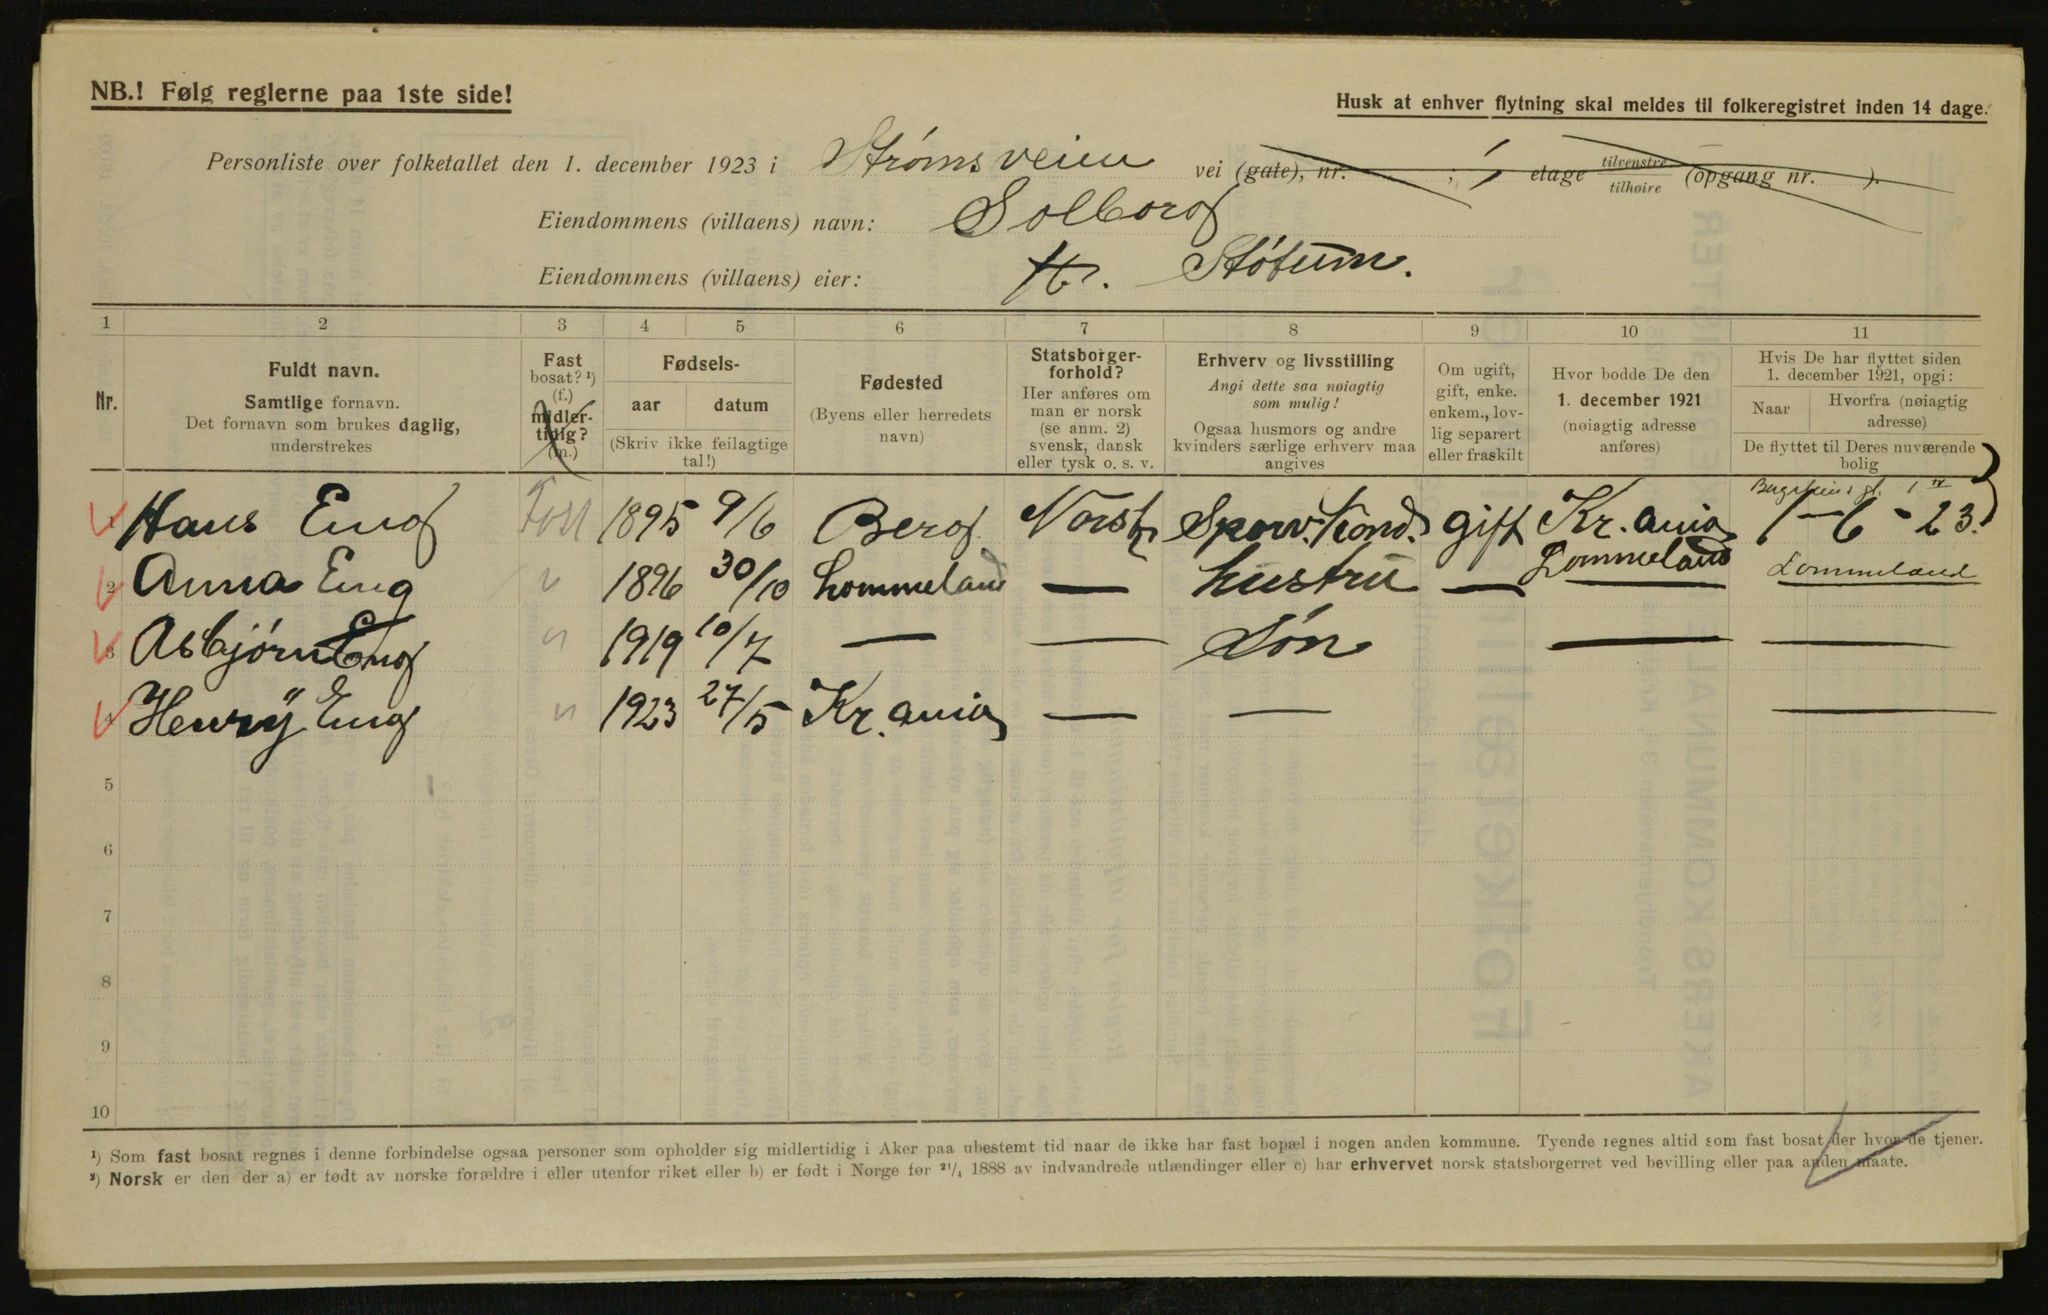 NB.! Følg reglerne paa 1ste side!
Husk at enhver flytning skal meldes til folkeregistret inden 14 dage.
Personliste over folketallet den 1. december 1923 i Strømsveien vei (gate), nr. ; 1 etage tilvenstre tilhøire (opgang nr. ).
Eiendommens (villaens) navn: Solborg
Eiendommens (villaens) eier: Støtum.
1 2 3 4 5 6 7 8 9 10 11
Nr.
Fuldt navn.
Samtlige fornavn.
Det fornavn som brukes daglig, understrekes
Fast bosat? ¹) (f.) midlertidig? (m.)
Fødsels-
aar datum
(Skriv ikke feilagtige tal!)
Fødested
(Byens eller herredets navn)
Statsborgerforhold?
Her anføres om man er norsk (se anm. 2) svensk, dansk eller tysk o. s. v.
Erhverv og livsstilling
Angi dette saa nøiagtig som mulig!
Ogsaa husmors og andre kvinders særlige erhverv maa angives
Om ugift, gift, enke. enkem., lovlig separert eller fraskilt
Hvor bodde De den 1. december 1921 (nøiagtig adresse anføres)
Hvis De har flyttet siden 1. december 1921, opgi:
Naar Hvorfra (nøiagtig adresse)
De flyttet til Deres nuværende bolig
1 Hans Eng Fast 1895 9/6 Berg Norsk Sporv. Kond. gift Kr.ania 1-6-23.
2 Anna Eng " 1896 30/10 Lommeland — hustru — Lommeland Lommeland
3 Asbjørn Eng " 1919 10/7 — — Søn — —
4 Henry Eng " 1923 27/5 Kr.ania — — —
5
6
7
8
9
10
¹) Som fast bosat regnes i denne forbindelse ogsaa personer som opholder sig midlertidig i Aker paa ubestemt tid naar de ikke har fast bopæl i nogen anden kommune. Tyende regnes altid som fast bosat der hvor de tjener.
²) Norsk er den der a) er født av norske forældre i eller utenfor riket eller b) er født i Norge før ²¹/₄ 1888 av indvandrede utlændinger eller c) har erhvervet norsk statsborgerret ved bevilling eller paa anden maate.